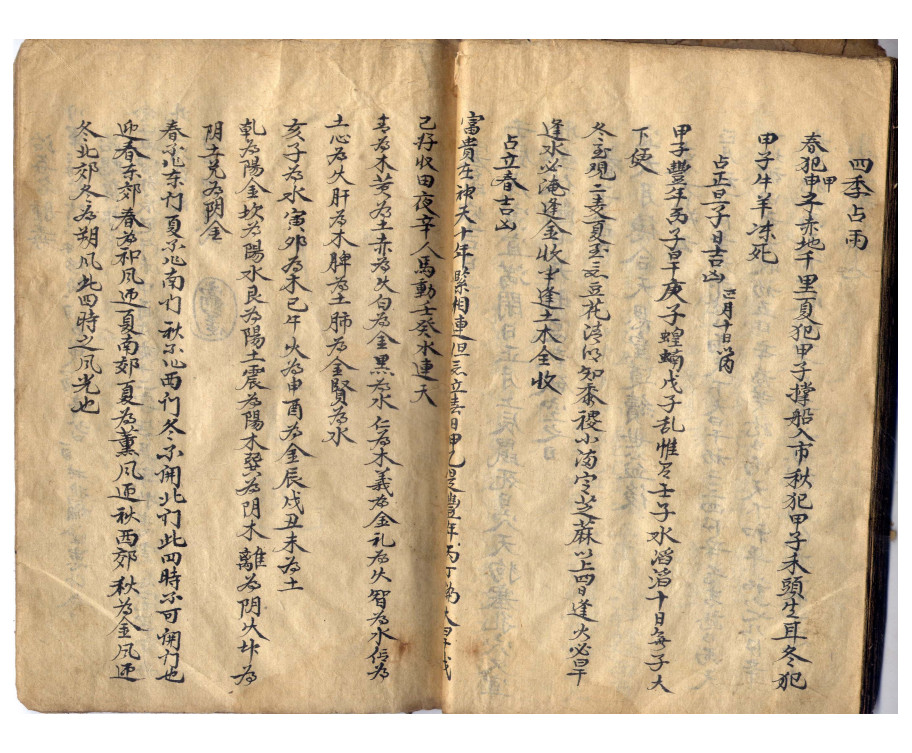 四季占雨
春犯甲子赤地千里夏犯甲子撑船入市秋犯甲子禾頭生耳冬犯
甲子牛羊冻死
占正旦子日吉凶 正月十日以内
甲子豐年丙子旱庚子蝗蝻戊子乱惟有壬子水滔滔十日每子大
下使
冬至观二麦夏至豆花清明知黍稷小满芝蔴以上四日逢火必旱
逢水必淹逢金收半逢土木全收
占立春吉凶
富貴在神天十年緊相連但立春日甲乙是豊年丙丁大旱
己好收田夜辛人馬動壬癸水連天
青為木黄為土赤為火白為金黒為水仁為木義為金礼為火智為水信為
土心為火肝為木脾為土肺為金賢為水
亥子為水寅夘為木巳午火為申酉為金辰戌丑未為土
乾為陽金坎為陽水艮為陽土震為陽木巽為阴木離為阴火坤為
阴土兑為阴金
春不東门夏不南门秋不西门冬不開北门此四時不可開门也
迎春东郊春為和风迎夏南郊夏為薰风迎秋西郊秋為金风迎
冬北郊冬為朔风此四時之风光也